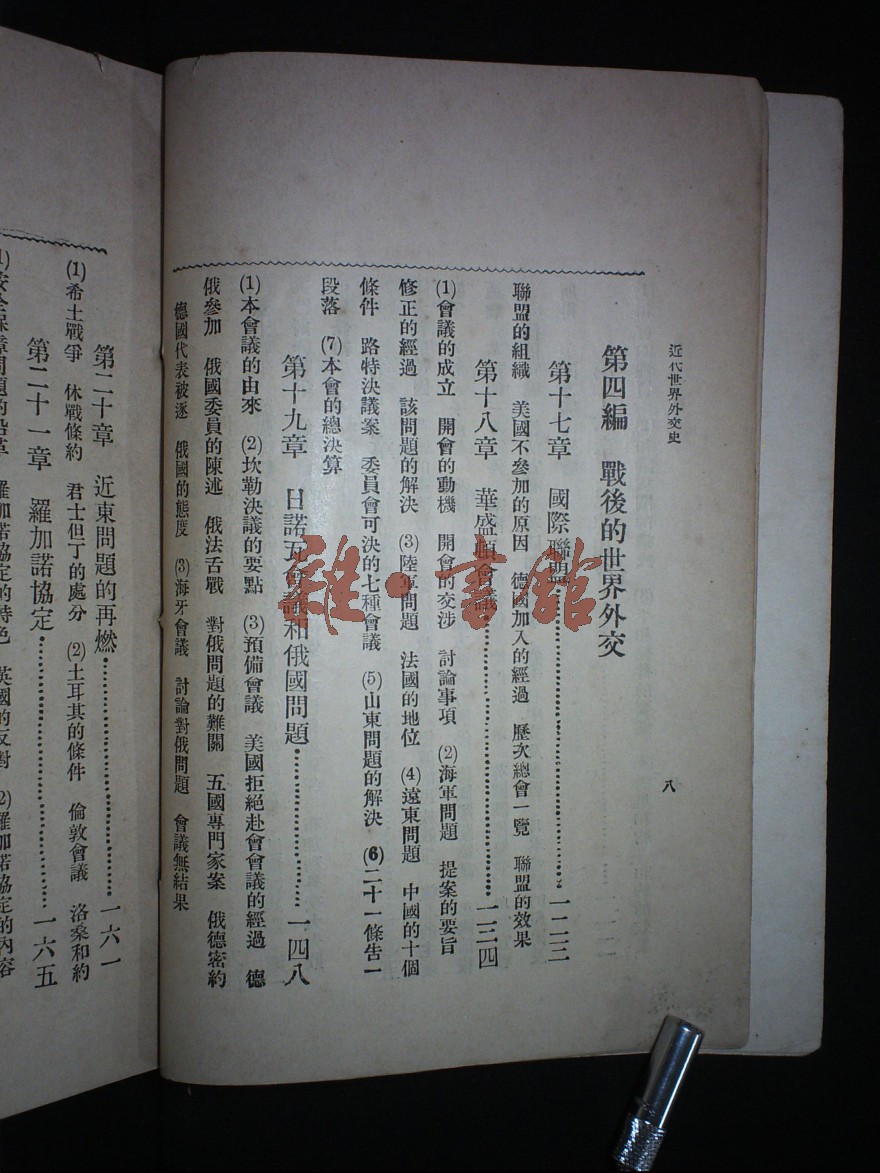 近代世界外交史
八
第四編　戰後的世界外交
第十七章　國際聯盟……一二三
聯盟的組織　美國不參加的原因　德國加入的經過　歷次總會一覽　聯盟的效果
第十八章　華盛頓會議……一三四
(1)會議的成立　開會的動機　開會的交涉　討論事項　(2)海軍問題　提案的要旨
修正的經過　該問題的解決　(3)陸軍問題　法國的地位　(4)遠東問題　中國的十個
條件　路特決議案　委員會可決的七種會議　(5)山東問題的解決　(6)二十一條告一
段落　(7)本會的總決算
第十九章　日諾瓦會議和俄國問題……一四八
(1)本會議的由來　(2)坎勒決議的要點　(3)預備會議　美國拒絕赴會會議的經過　德
俄參加　俄國委員的陳述　俄法舌戰　對俄問題的難關　五國專門家案　俄德密約
德國代表被逐　俄國的態度　(3)海牙會議　討論對俄問題　會議無結果
第二十章　近東問題的再燃……一六一
(1)希土戰爭　休戰條約　君士但丁的處分　(2)土耳其的條件　倫敦會議　洛桑和約
第二十一章　羅加諾協定……一六五
(1)安全保障問題的沿革　羅加諾協定的特色　英國的反對　(2)羅加諾協定的內容
雜·書館